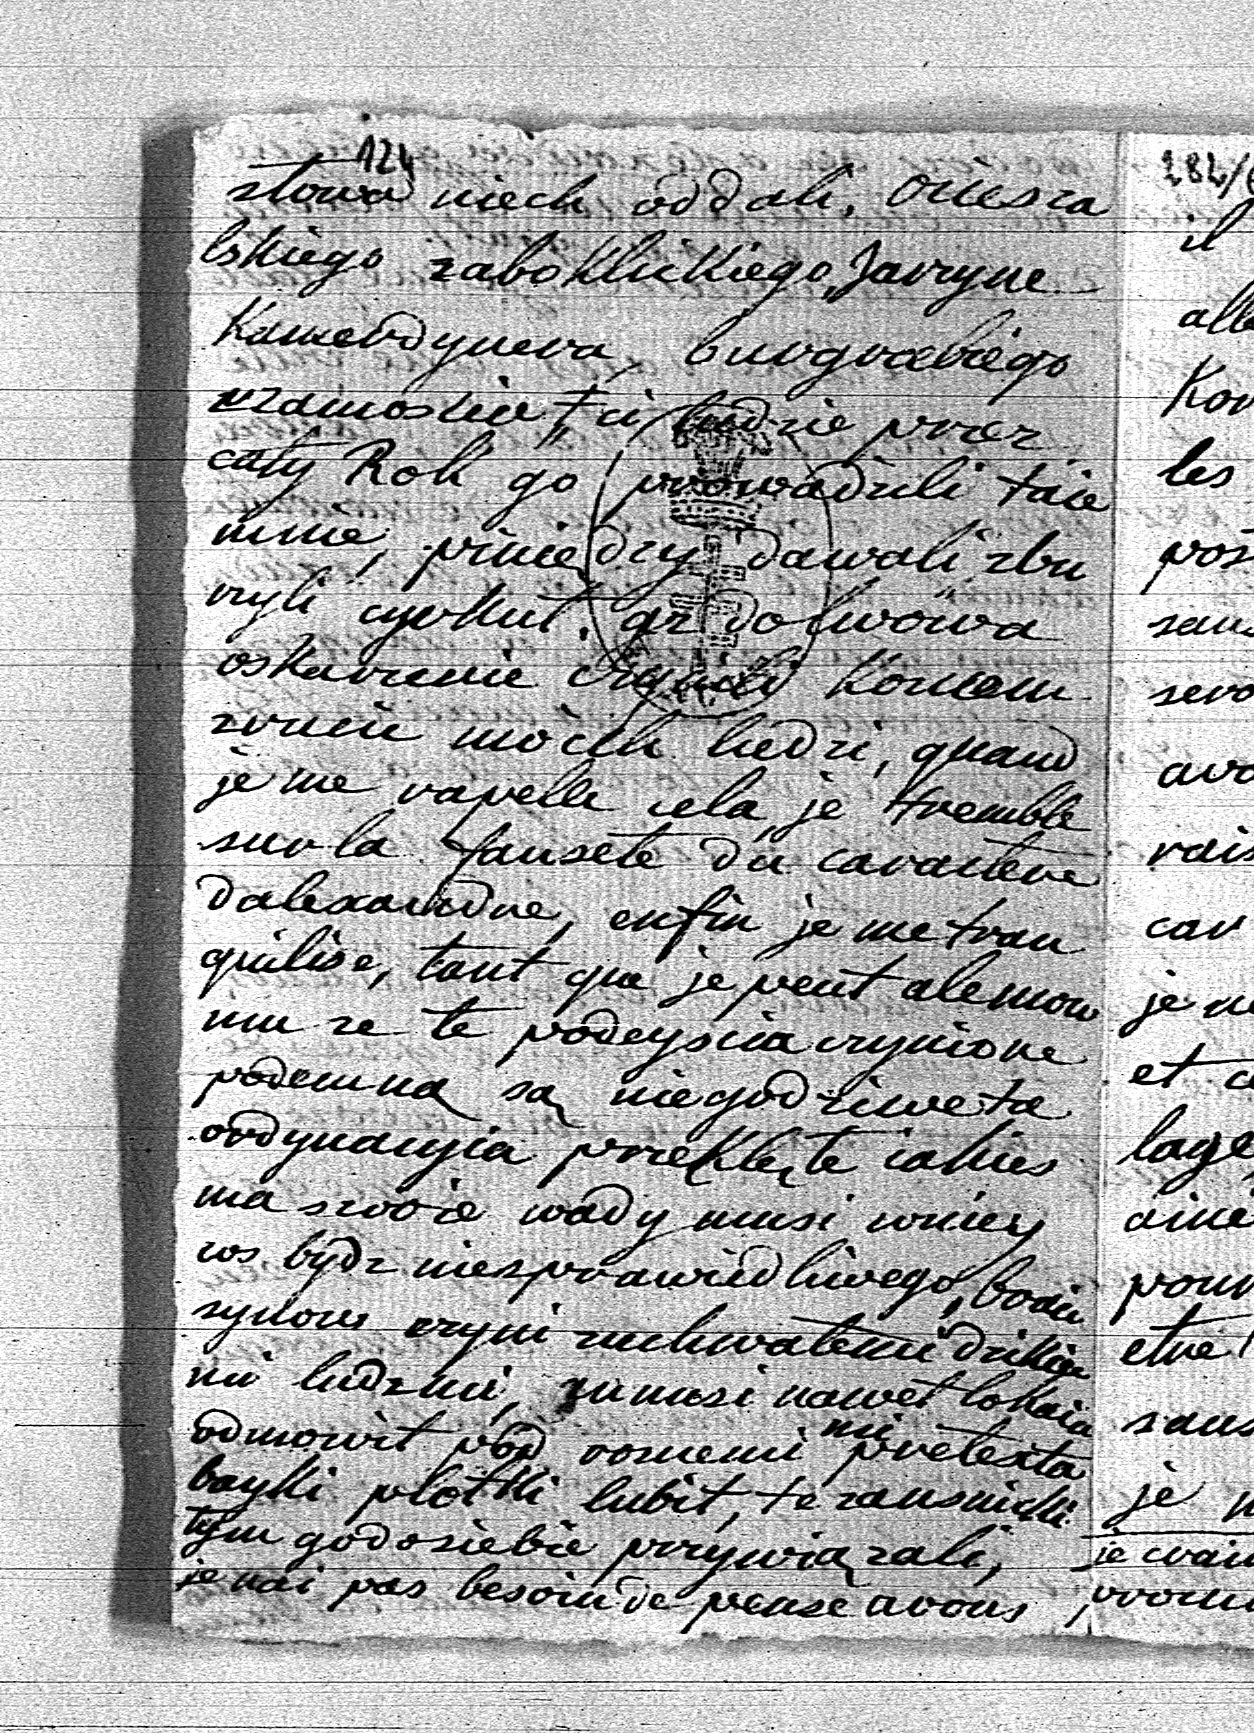 124
słowa niech oddali, Orlesza
lskiego zaboklickiego, Jawryne
Kamerdynera, burgrabiego
ci ludzie przez
cały Rok go prowadzili taie
mnie, piniędzy dawali zbu
rzyli cyrkuł, do lwowa
oskarzenie czynili Koncem
zoncie moich ludzi, quand
je me rapelle cela, je tremble
sur la fauseté du caractere
dalexandre, enfin je me tran
quilise, tant que je peut ale mow
mu ze te podeyscia czynione
podemną są niegodziwe ta
ordynacyia przeklęte iakies
ma swoie wady musi wniey
cos bydz niesprawiedliwego, bo aiu
synow czyni zuchwałemi dzikie
mi ludzmi, zumusi nawet lokaia
odmowił pod roznemi mi pretexta
bayki plotki lubił, te zausniki
tym go do siebie przywiązali,
je nai pas besoin de pense avous
282/
il
alle
Kon
les
pos
sans
sero
avo
rais
car
je n
et c
lage
aime
pour
etre
sans
je n
je crai
promi